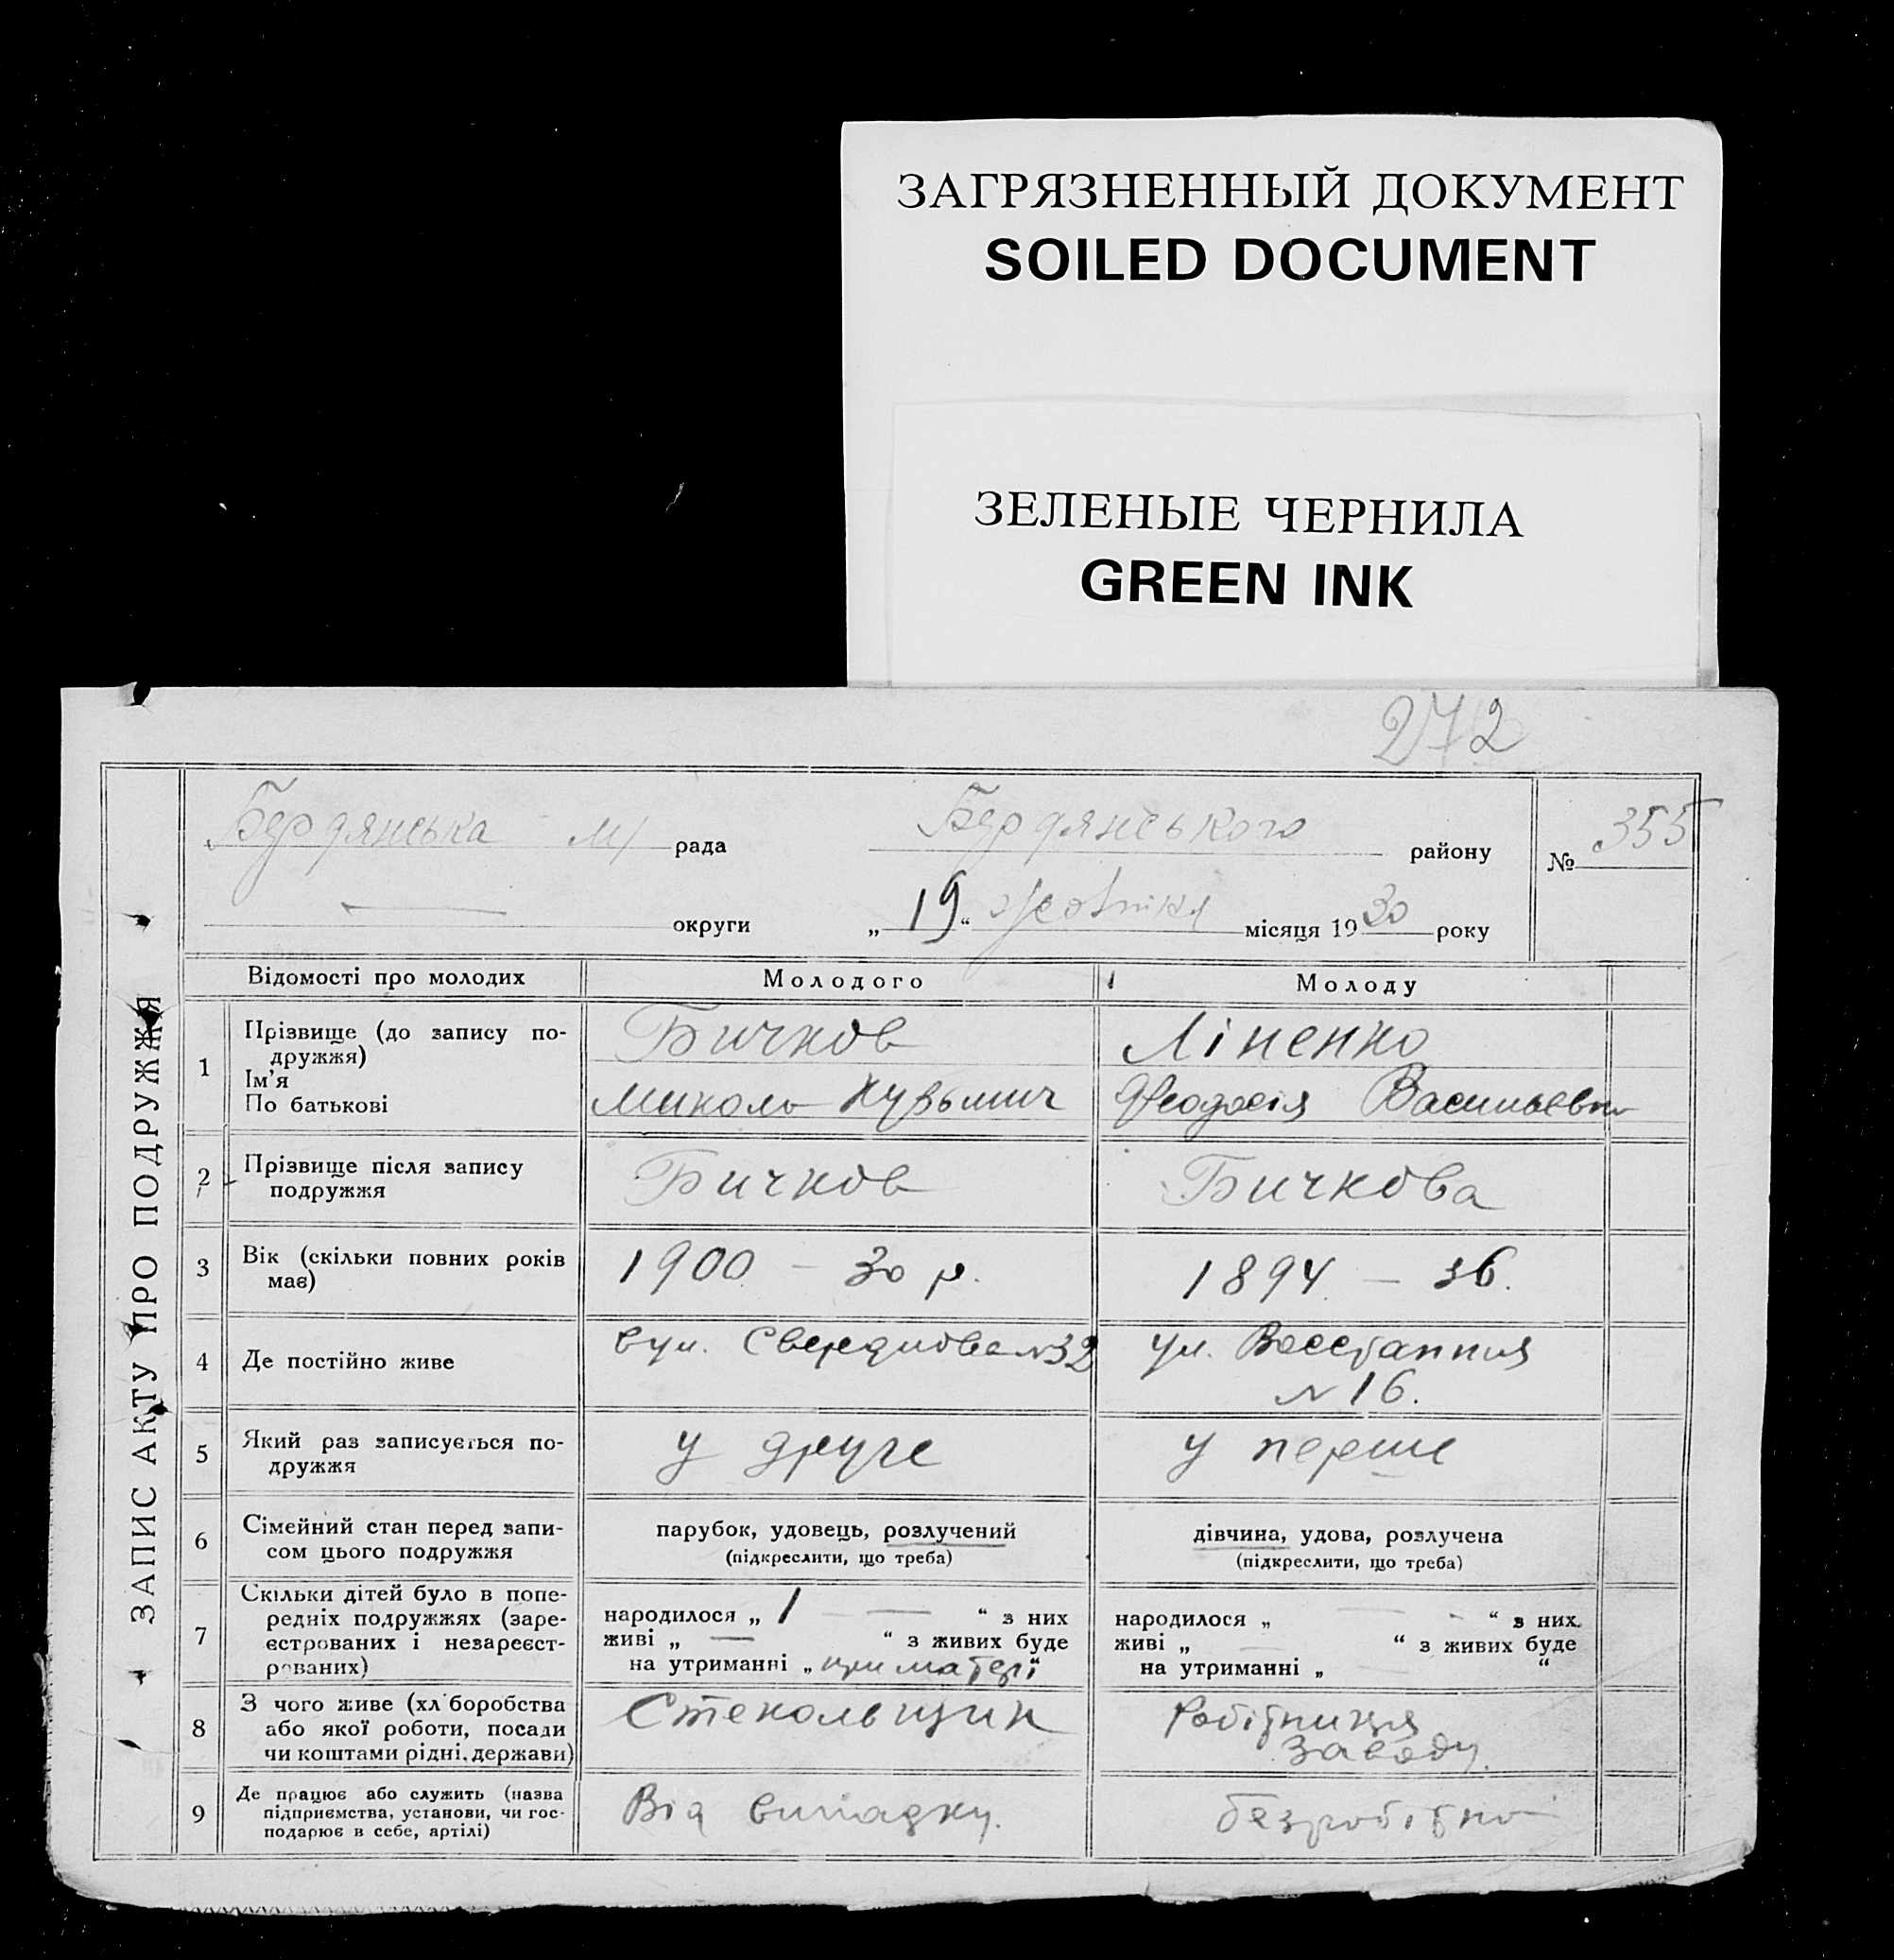 ЗАГРЯЗНЕННЫЙ ДОКУМЕНТ
SOILED DOCUMENT
ЗЕЛЕНЫЕ ЧЕРНИЛА
GREEN INK
272
ЗАПИС АКТУ ПРО ПОДРУЖЖЯ
Бердянська м/ рада
Бердянського району
№ 355
округи
„19“ жовтня місяця 1930 року
Відомості про молодих
Молодого
Молоду
1
Прізвище (до запису по-
дружжя)
Ім'я
По батькові
Бичков
Микола Кузьмич
Ліненко
Феодосія Васильевна
2
Прізвище після запису
подружжя
Бичков
Бичкова
3
Вік (скільки повних років
має)
1900 – 30 р.
1894 – 36.
4
Де постійно живе
вул. Свердлова №32
ул. Восстания
№ 16.
5
Який раз записується по-
дружжя
у друге
у перше
6
Сімейний стан перед запи-
сом цього подружжя
парубок, удовець, розлучений
(підкреслити, що треба)
дівчина, удова, розлучена
(підкреслити, що треба)
7
Скільки дітей було в попе-
редніх подружжях (заре-
єстрованих і незареєст-
рованих)
народилося „ 1 — “ з них
живі „ — “ з живих буде
на утриманні „ при матері “
народилося „ — “ з них
живі „ — “ з живих буде
на утриманні „ “
8
З чого живе (хліборобства
або якої роботи, посади
чи коштами рідні, держави)
Стекольщик
Робітниця
заводу.
9
Де працює або служить (назва
підприємства, установи, чи гос-
подарює в себе, артілі)
Від випадку.
безробітна